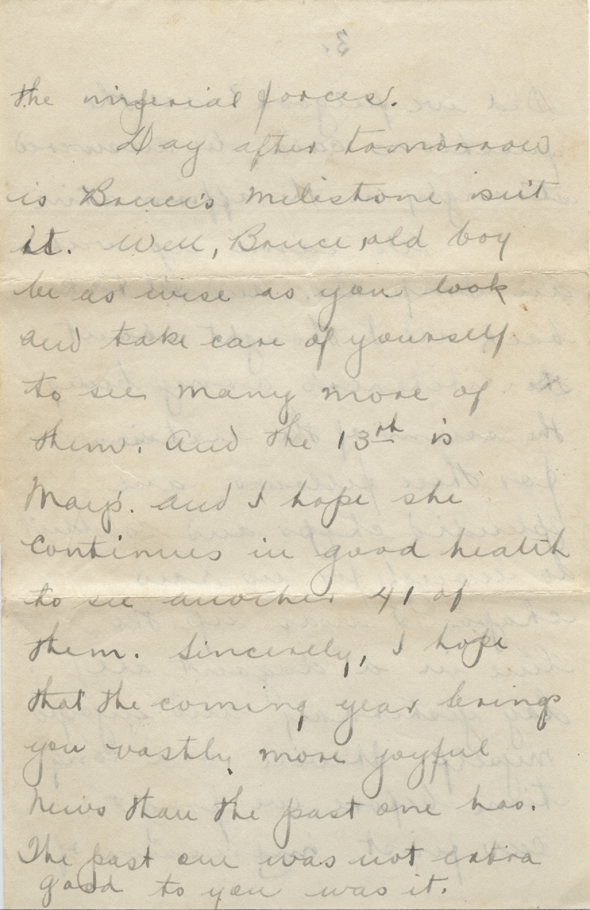 3.
the imperial forces.
Day after tomorrow
is Bruce's milestone isn't
it. Well, Bruce, old boy
be as wise as you look
and take care of yourself
to see many more of
them. And the 13th is
Mary's. and I hope she
continues in good health
to see another 41 of
them. Sincerely, I hope
that the coming year brings
you vastly more joyful
news than the past one has.
The past one was not extra
good to you was it.